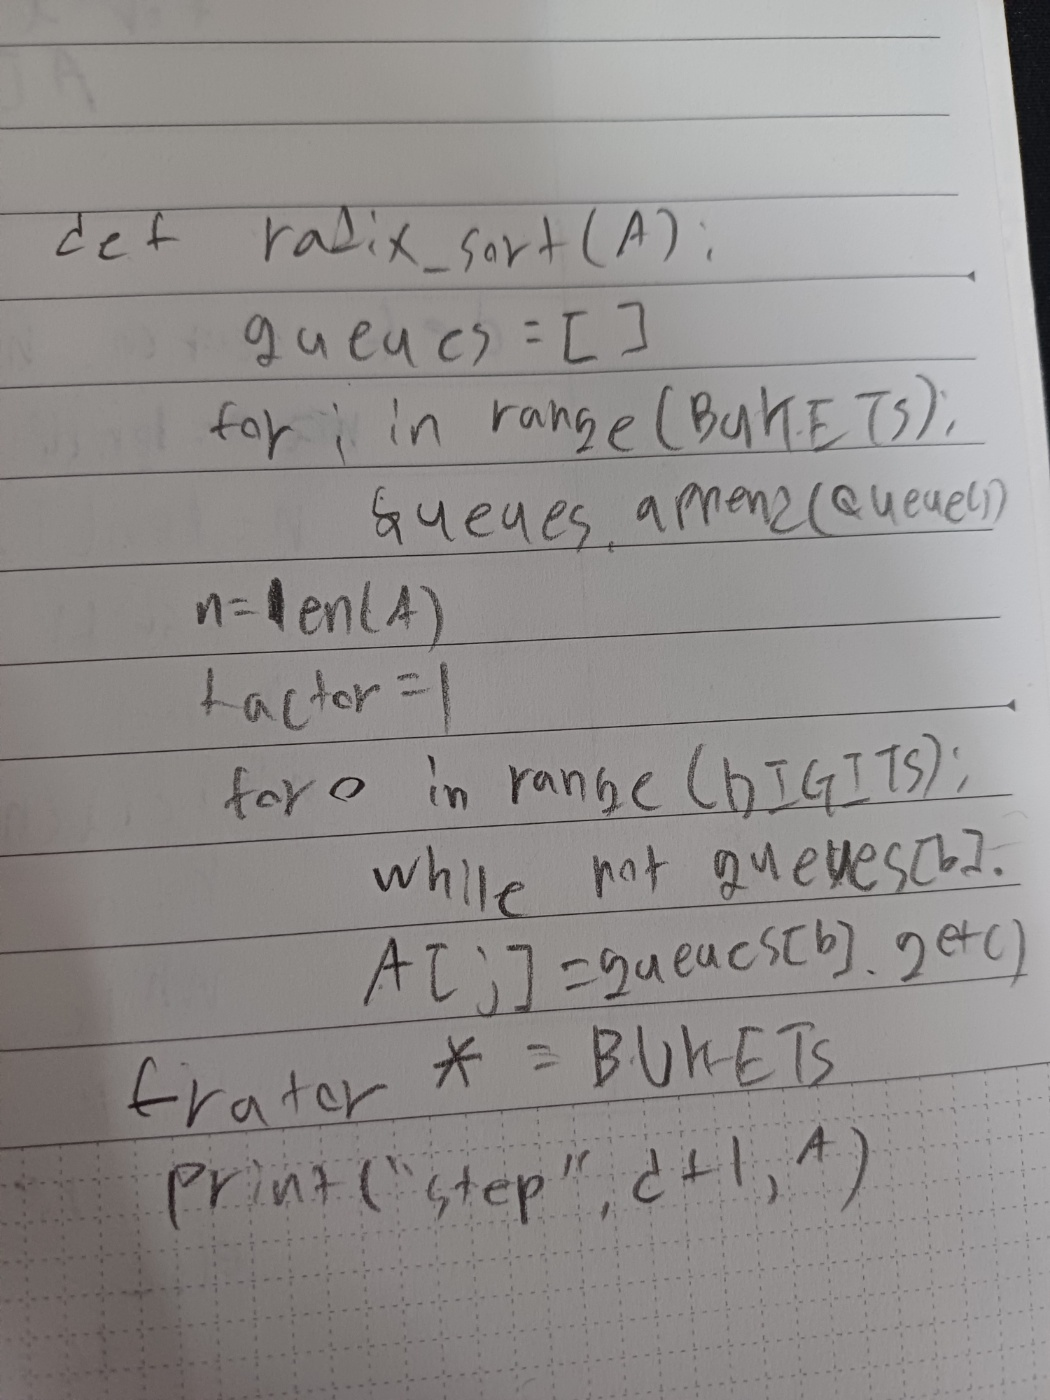 def radix_sort(A):
queues = [ ]
for i in range(BUKETS):
queues. append(Queue())
n=len(A)
factor=1
for d in range (DIGITS):
while not queues[b].
A[j] =queues[b]. get()
frator * = BUKETS
print("step", d+1, A)